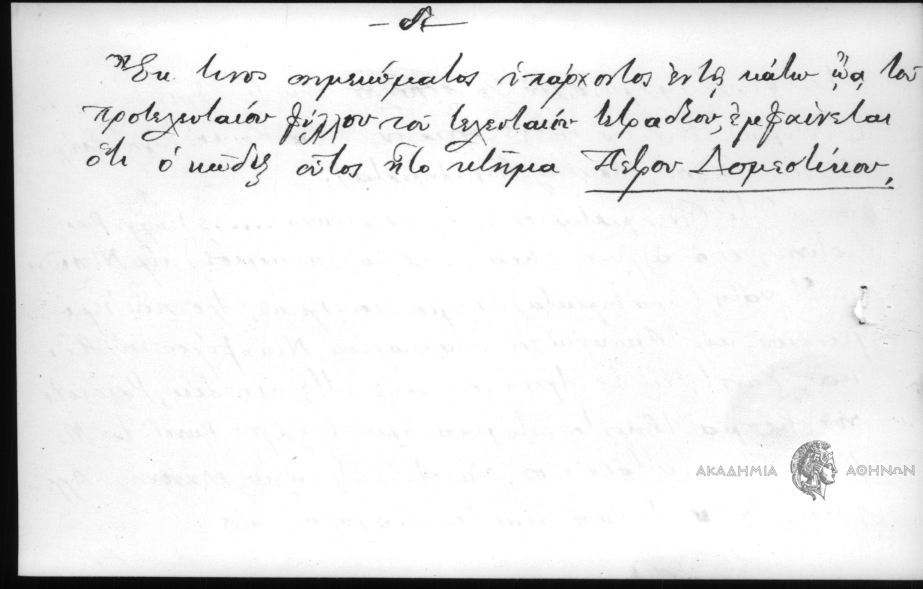 — δ —
Ἔκ τινος σημειώματος ὑπάρχοντος ἐν τῇ κάτω ᾤᾳ τοῦ
προτελευταίου φύλλου τοῦ τελευταίου τετραδίου, ἐμφαίνεται
ὅτι ὁ κῶδιξ οὗτος ἦτο κτῆμα Πέτρου Δομεστίκου,
ΑΚΑΔΗΜΙΑ ΑΘΗΝΩΝ